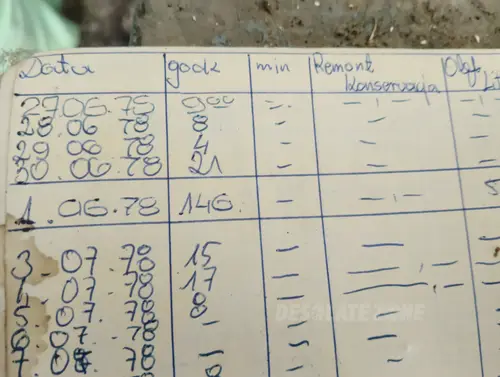 Data godz min Remont Konserwacja
27.06.78 9⁰⁰ — . — — . —
28.06 78 8 — —
29 06 78 4 — —
30.06.78 21 — —
1.06.78 146. — — . —
3.07.78 15 — —
4.07.78 17 — —
5.07.78 8 — —
6.07.78 — — —
7.07.78 — —
DESOLATE ZONE